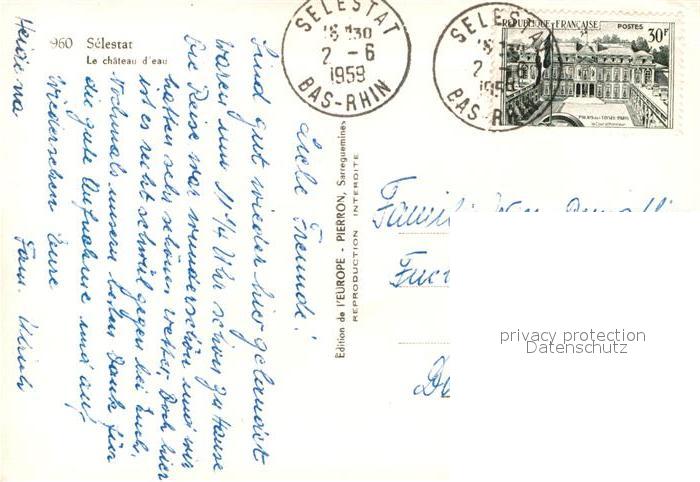 960 Sélestat
Le château d'eau
SÉLESTAT
18 H30
2 - 6
1959
BAS-RHIN
SÉLESTAT
2 - 6
1959
BAS-RHIN
REPUBLIQUE FRANÇAISE
POSTES
30F
Édition de l'EUROPE - PIERRON, Sarreguemines
REPRODUCTION INTERDITE
Liebe Freunde!
Sind gut wieder hier gelandet
waren um 11 1/4 Uhr schon zu Hause
Die Reise war wunderschön und wir
hatten sehr schönes Wetter. Doch hier
ist es recht schwül gegen bei Euch.
Nochmals unsern besten Dank für
die gute Aufnahme und auf
Wiedersehen Eure
Fam. Ulrich
Familie
privacy protection
Datenschutz